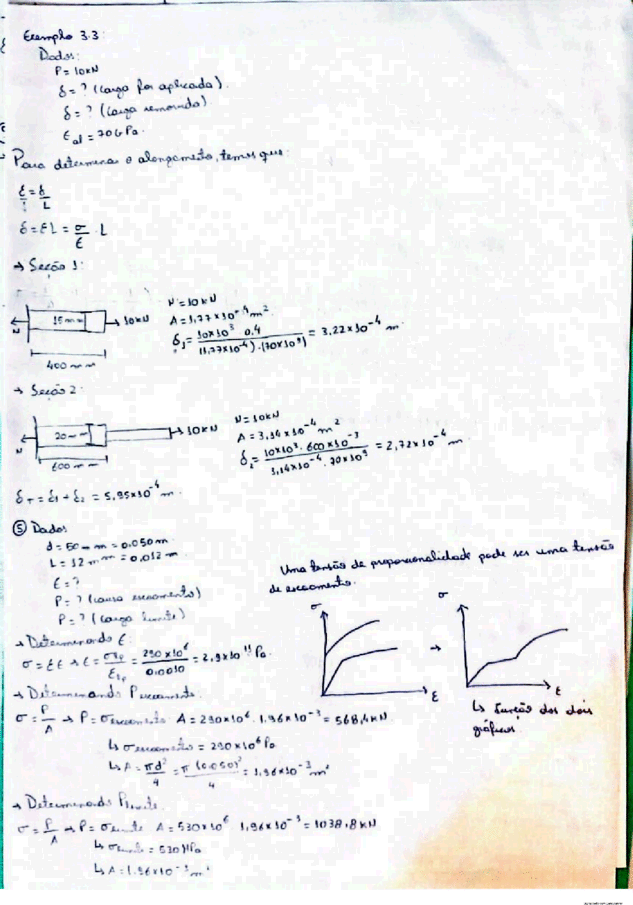 Exemplo 3.3:
Dados:
P = 10kN
δ = ? (carga for aplicada).
δ = ? (carga removida).
Eal = 70GPa.
Para determinar o alongamento, temos que:
ε = δ/L
δ = εL = σ/E · L
→ Secção 1:
N
15mm
10kN
400mm
N = 10kN
A = 1,77x10⁻⁴m²
δ1 = 10x10³ 0,4 / (1,77x10⁻⁴).(70x10⁹) = 3,22x10⁻⁴ m.
→ Secção 2:
N
20mm
10kN
600mm
N = 10kN
A = 3,14x10⁻⁴ m²
δ2 = 10x10³. 600x10⁻³ / 3,14x10⁻⁴. 70x10⁹ = 2,72x10⁻⁴ m
δT = δ1 + δ2 = 5,95x10⁻⁴ m.
⑤ Dados
d = 50mm = 0,050m
L = 12mm = 0,012m
E = ?
P = ? (carga escoamento)
P = ? (carga limite)
→ Determinando E:
σ = Eε → E = σlp/εlp = 290x10⁶/0,0010 = 2,9x10¹¹Pa.
→ Determinando Pescoamento.
σ = P/A → P = σescoamento A = 290x10⁶. 1,96x10⁻³ = 568,4kN
↳ σescoamento = 290x10⁶Pa
↳ A = πd²/4 = π(0,050)²/4 = 1,96x10⁻³m²
→ Determinando Plimite.
σ = P/A → P = σlimite A = 530x10⁶ 1,96x10⁻³ = 1038,8kN
↳ σlimite = 530MPa
↳ A = 1,96x10⁻³m²
Uma tensão de proporcionalidade pode ser uma tensão
de escoamento.
σ
ε
→
σ
ε
↳ função dos dois
gráficos.